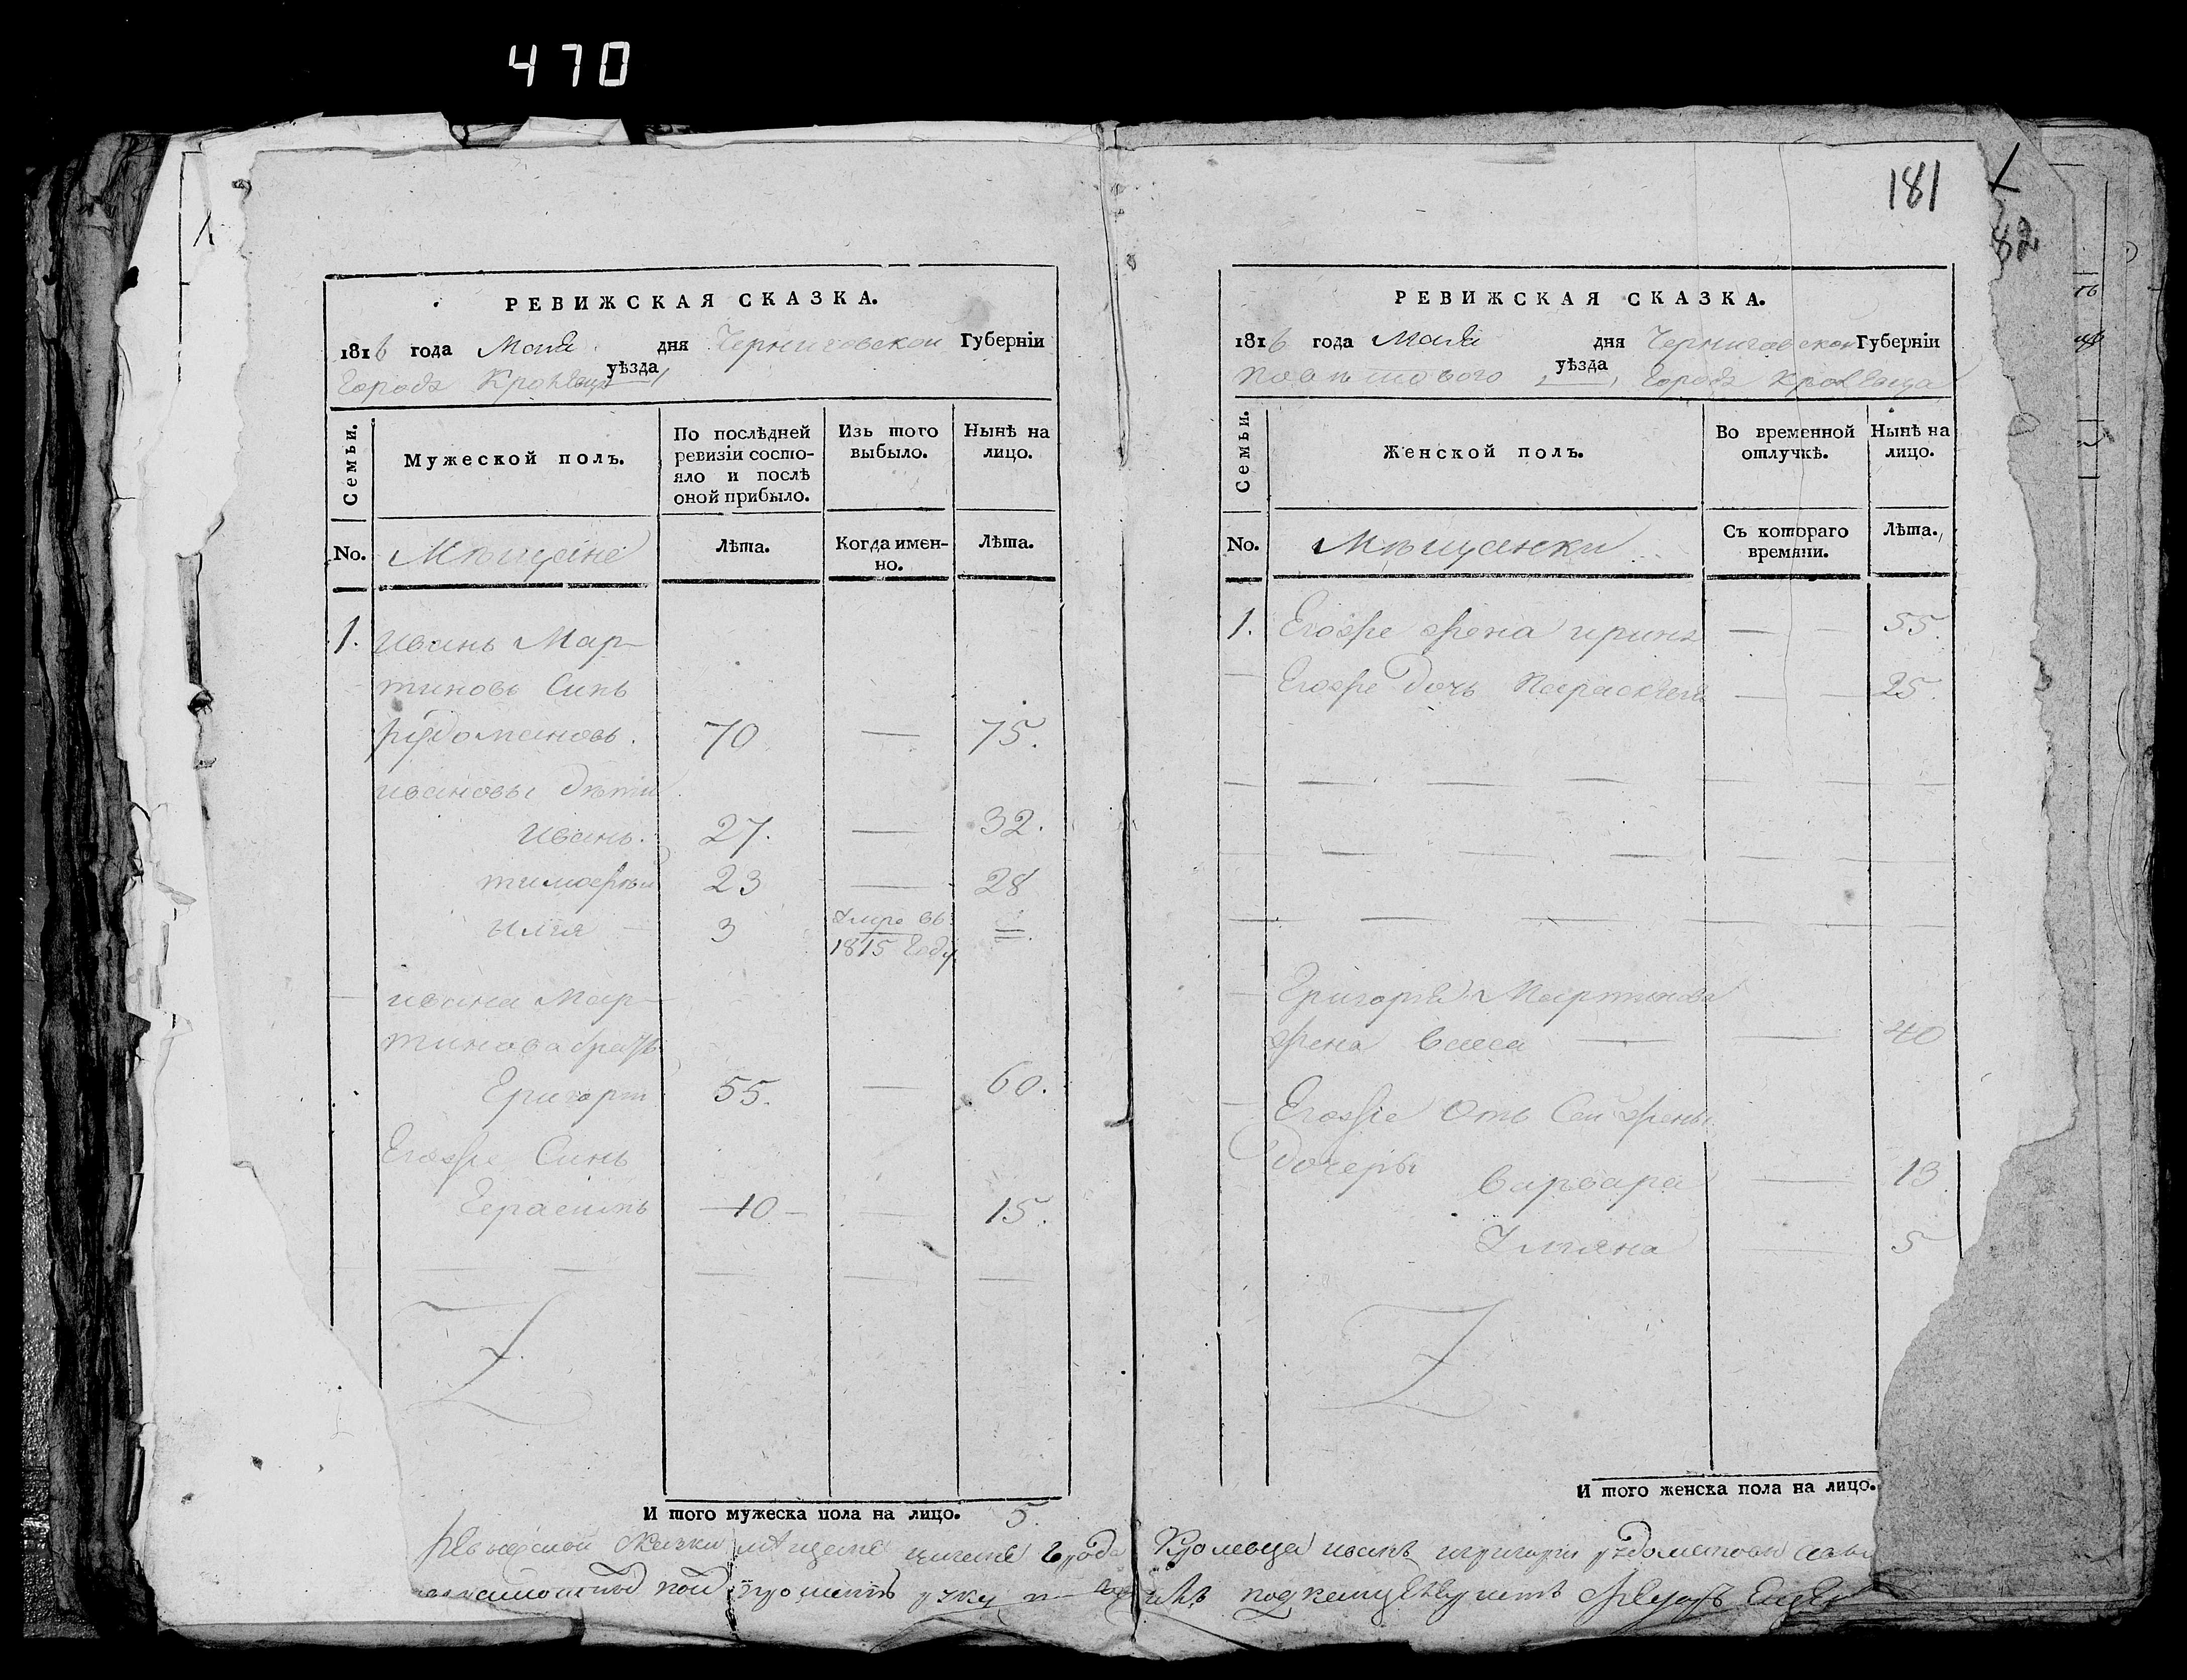 470
181
82
РЕВИЖСКАЯ СКАЗКА.
1816 года Маия дня Черниговской Губерніи
Города Кролевца уѣзда
Семьи.
Мужеской полъ.
По послѣдней ревизіи состо-
яло и послѣ оной прибыло.
Изъ того выбыло.
Нынѣ на лицо.
No.
Мѣщане
Лѣта.
Когда имен-
но.
Лѣта.
1. Иванъ Мар-
тиновъ Синъ
Рудомановъ. 70 — 75.
Ивановы дѣти
Иванъ. 27. — 32.
Тимофѣй 23 — 28
Илия — 3 Умре въ 1815 Году =
— Ивана Мар-
тинова братъ
Григорій 55. — 60.
Егоже Синъ
Герасимъ 10 — 15.
И того мужеска пола на лицо. 5.
РЕВИЖСКАЯ СКАЗКА.
1816 года Маия дня Черниговской Губерніи
уѣзда Города Кролевца
Семьи.
Женской полъ.
Во временной отлучкѣ.
Нынѣ на лицо.
No.
Мѣщанки
Съ котораго времяни.
Лѣта.
1. Егоже жена Ирина — 55.
— Егоже дочь Параскевия — 25.
— Григория Мартинова
жена Васса — 40
— Егоже Отъ Сей жены
дочеры Варвара — 13
Улияна — 5
И того женска пола на лицо.
Кролевца Иванъ